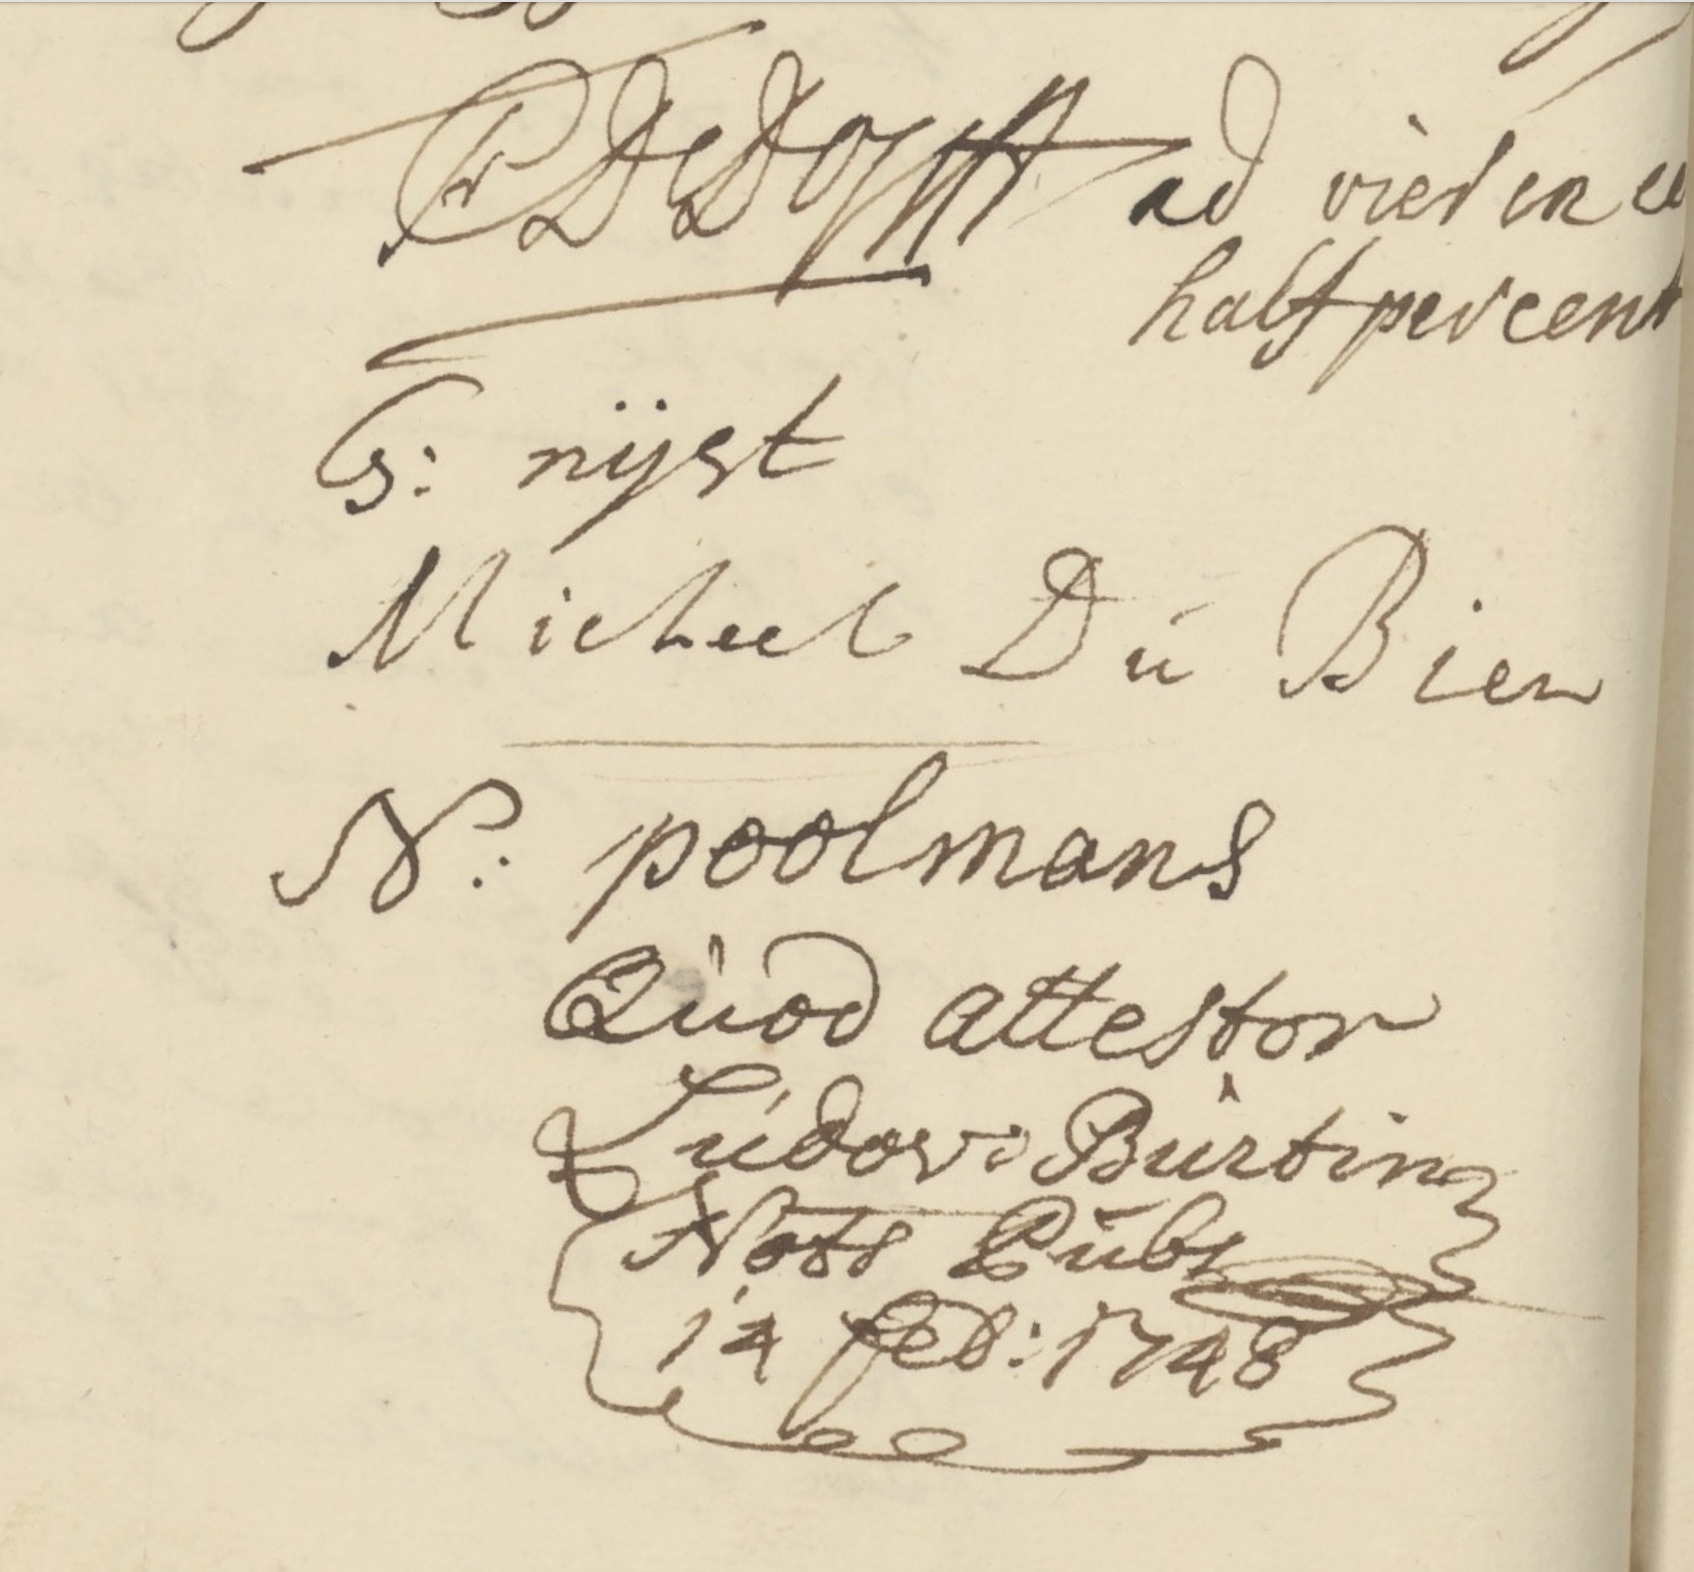 ad vier en ee
half percent
G: nijst
Micheel Dú Bien
N: poolmans
Qúod attestor
Lúdov: Búrtin
Nots Púbs
14 feb: 1748